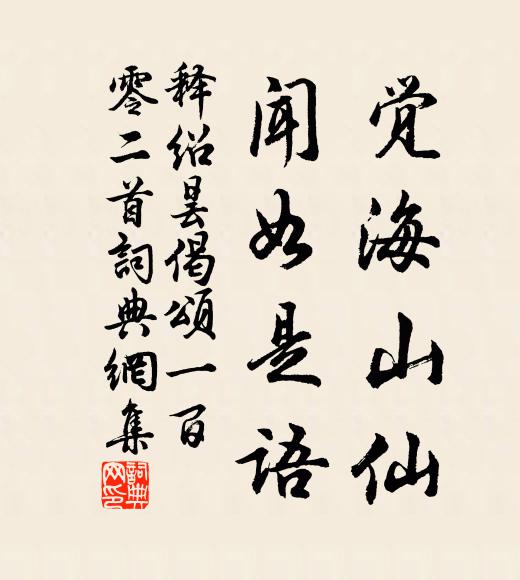 觉海山仙
闻如是语
释绍昙偈颂一百
零二首詞典網集
詞典
网印